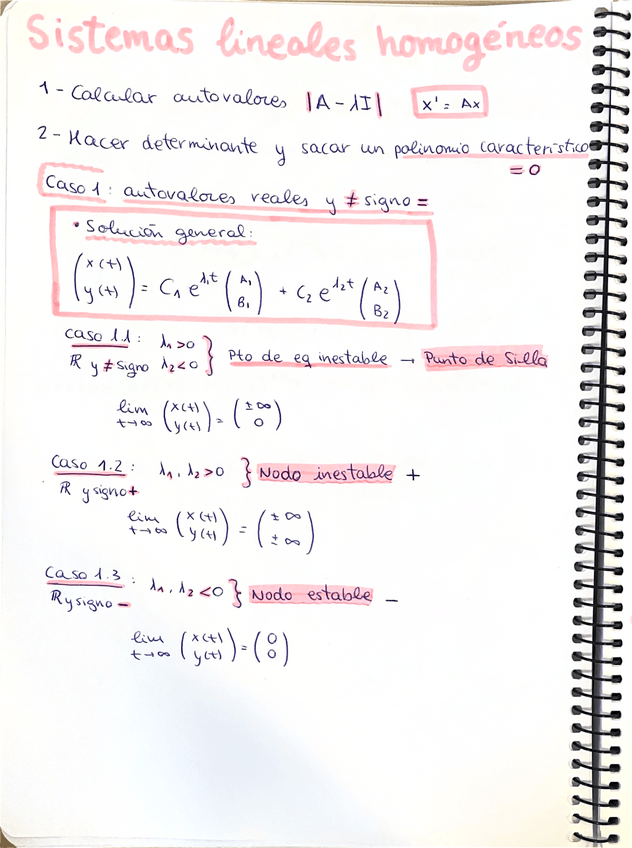 Sistemas lineales homogéneos
1 - Calcular autovalores |A - λI| x' = Ax
2 - Hacer determinante y sacar un polinomio característico
= 0
Caso 1: autovalores reales y ≠ signo =
• Solución general:
(x(t) y(t)) = C₁ e^λ₁t (A₁ B₁) + C₂ e^λ₂t (A₂ B₂)
Caso 1.1: λ₁>0
ℝ y ≠ signo λ₂<0 } Pto de eq inestable → Punto de Silla
lim t→∞ (x(t) y(t)) = (±∞ 0)
Caso 1.2: λ₁, λ₂ >0 } Nodo inestable +
ℝ y signo +
lim t→∞ (x(t) y(t)) = (±∞ ±∞)
Caso 1.3: λ₁, λ₂ <0 } Nodo estable −
ℝ y signo −
lim t→∞ (x(t) y(t)) = (0 0)